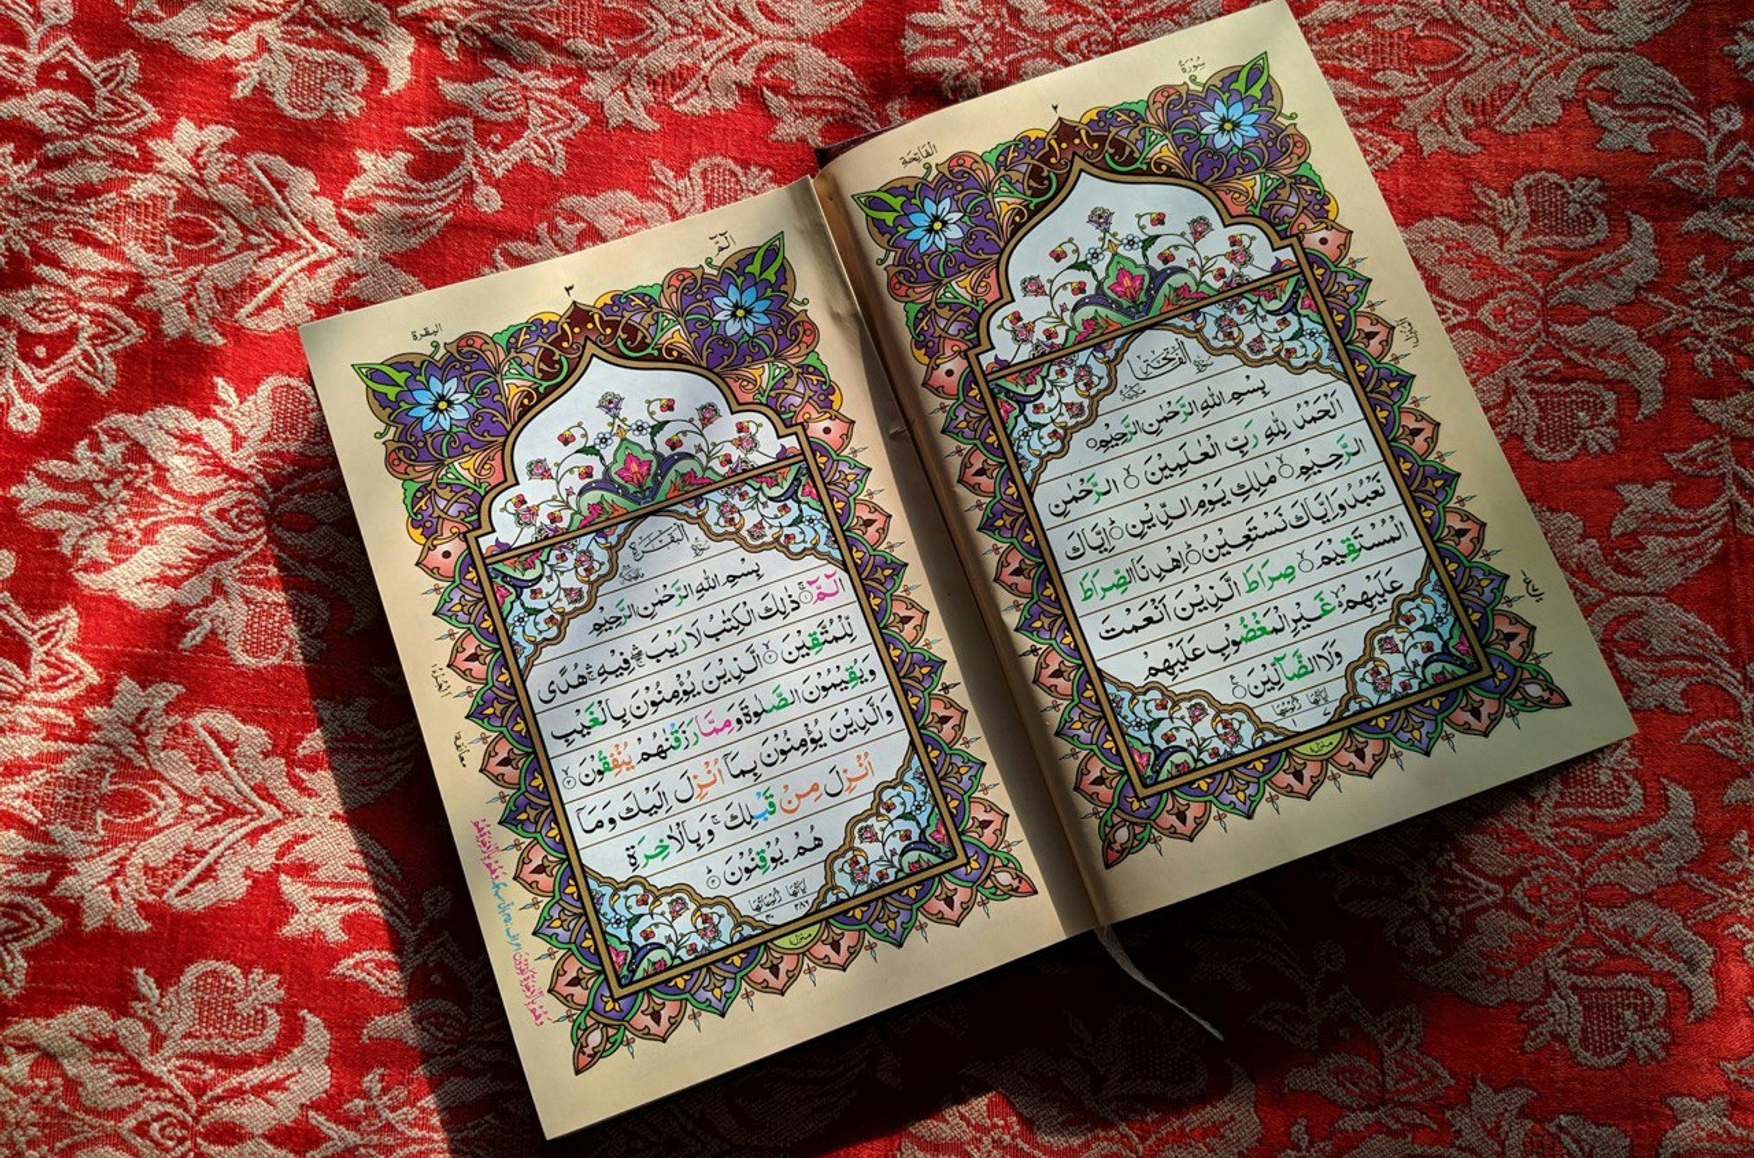 سُوْرَةُ
٢
الْفَاتِحَةِ
سُوْرَةُ الْفَاتِحَةِ مَكِّيَّةٌ
بِسْمِ اللّٰهِ الرَّحْمٰنِ الرَّحِيْمِ
اَلْحَمْدُ لِلّٰهِ رَبِّ الْعٰلَمِيْنَ ۙ الرَّحْمٰنِ
الرَّحِيْمِ ۙ مٰلِكِ يَوْمِ الدِّيْنِ ؕ اِيَّاكَ
نَعْبُدُ وَاِيَّاكَ نَسْتَعِيْنُ ؕ اِهْدِنَا الصِّرَاطَ
الْمُسْتَقِيْمَ ۙ صِرَاطَ الَّذِيْنَ اَنْعَمْتَ
عَلَيْهِمْ ۙ غَيْرِ الْمَغْضُوْبِ عَلَيْهِمْ
وَلَا الضَّآلِّيْنَ
اٰيَاتُهَا ٧ رُكُوْعُهَا ١
منزل ١
الٓمّٓ
٣
البقرة
سُوْرَةُ الْبَقَرَةِ
بِسْمِ اللّٰهِ الرَّحْمٰنِ الرَّحِيْمِ
الٓمّٓ ۚ ذٰلِكَ الْكِتٰبُ لَا رَيْبَ ۛۚ فِيْهِ ۛۚ هُدًى
لِّلْمُتَّقِيْنَ ۙ الَّذِيْنَ يُؤْمِنُوْنَ بِالْغَيْبِ
وَيُقِيْمُوْنَ الصَّلٰوةَ وَمِمَّا رَزَقْنٰهُمْ يُنْفِقُوْنَ ۙ
وَالَّذِيْنَ يُؤْمِنُوْنَ بِمَآ اُنْزِلَ اِلَيْكَ وَمَآ
اُنْزِلَ مِنْ قَبْلِكَ ۚ وَبِالْاٰخِرَةِ
هُمْ يُوْقِنُوْنَ ؕ
اٰيَاتُهَا ٢٨٦ رُكُوْعَاتُهَا ٤٠
منزل ١